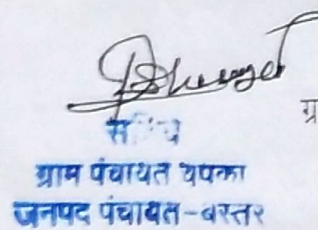 ग्र
सचिव
ग्राम पंचायत चपका
जनपद पंचायत-बस्तर